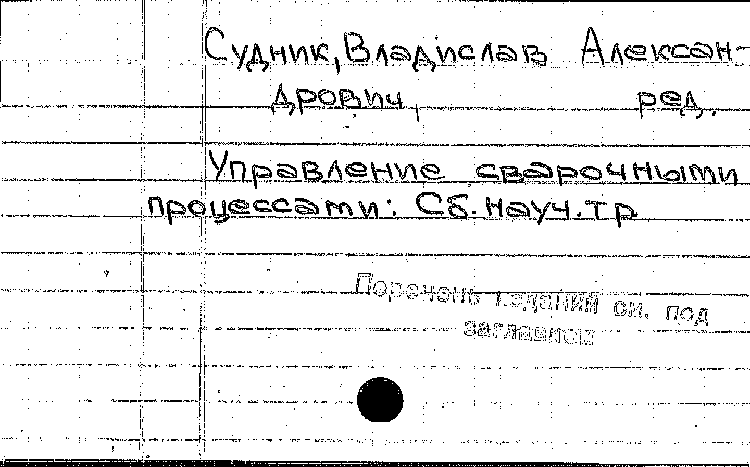 Судник, Владислав Алексан-
дрович, ред.
Управление сварочными
процессами: Сб. науч. тр
Перечень изданий см. под
заглавием